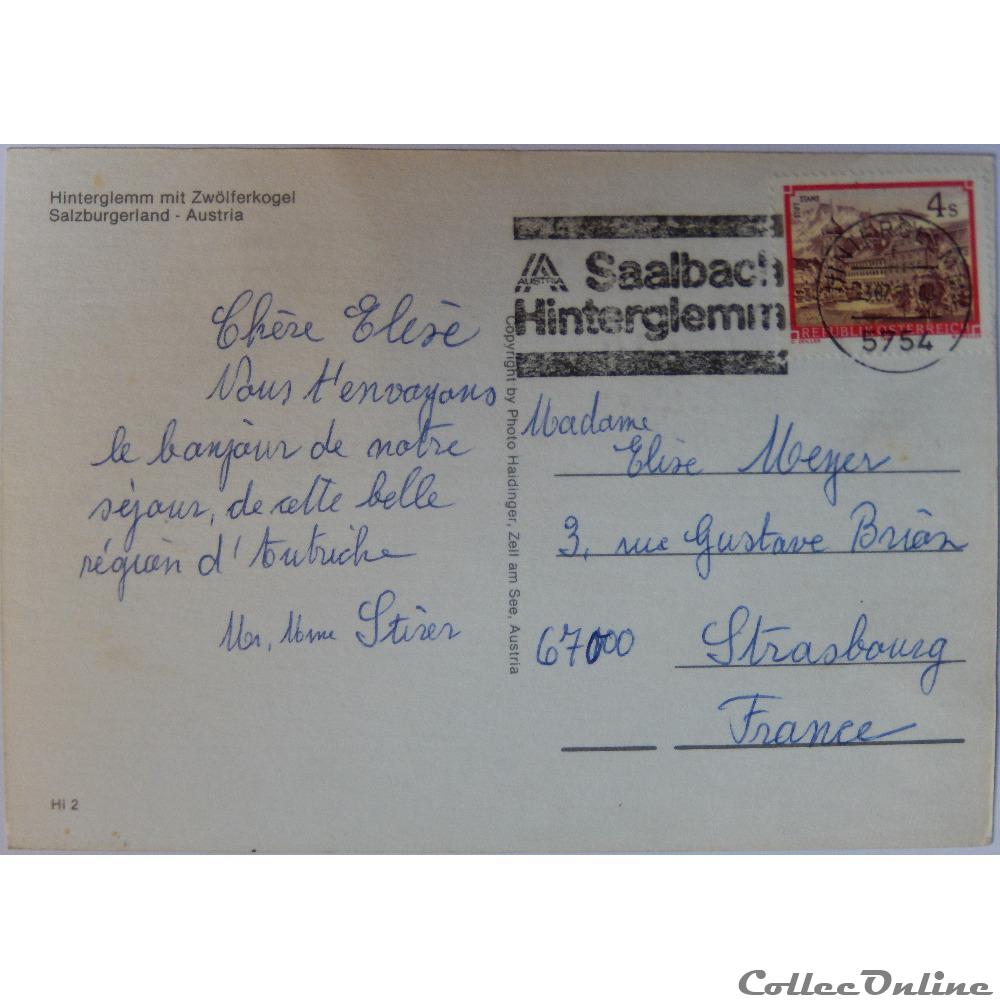 Hinterglemm mit Zwölferkogel
Salzburgerland - Austria
Chère Elise
Nous t'envoyons
le bonjour de notre
séjour, de cette belle
région d'Autriche
Mr, Mme
Hi 2
Copyright by Photo Haidinger, Zell am See, Austria
AUSTRIA
Saalbach
Hinterglemm
STIFT STAMS
4 S
REPUBLIK ÖSTERREICH
HINTERGLEMM
5754
Madame
Elise Meyer
3, rue Gustave Brion
67000 Strasbourg
France
CollecOnline